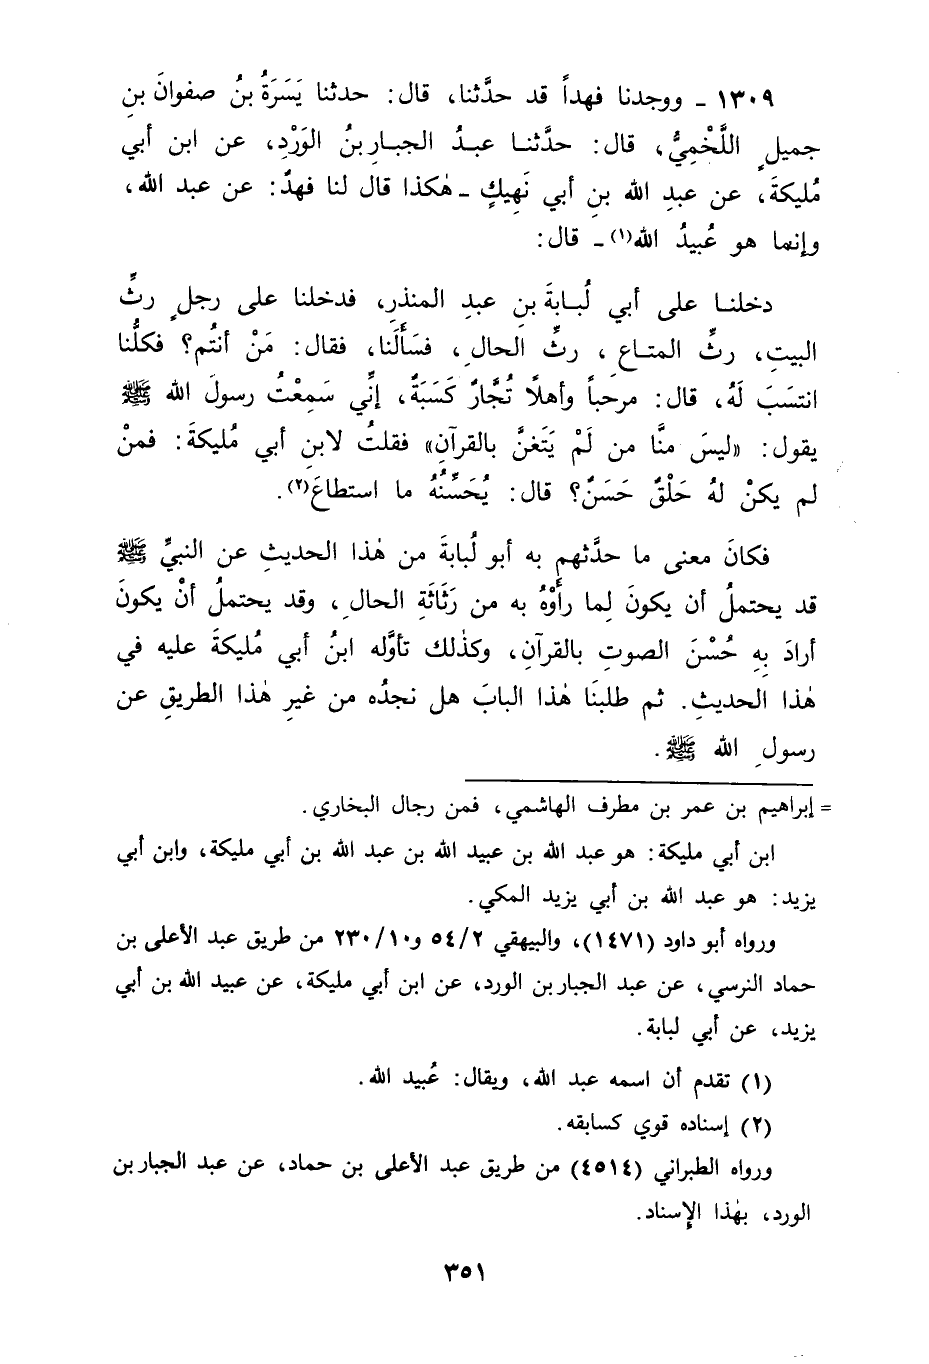 ١٣٠٩ ـ ووجدنا فهداً قد حدَّثنا، قال: حدثنا يَسَرَةُ بنُ صفوانَ بنِ
جميلٍ اللَّخْمِيُّ، قال: حدَّثنا عبدُ الجبارِ بنُ الوَرْدِ، عن ابن أبي
مُليكةَ، عن عبدِ الله بنِ أبي نَهِيكٍ ـ هٰكذا قال لنا فهدٌ: عن عبد الله،
وإنما هو عُبيدُ الله(١) ـ قال:
دخلنا على أبي لُبابةَ بنِ عبدِ المنذرِ، فدخلنا على رجلٍ رثِّ
البيتِ، رثِّ المتاعِ، رثِّ الحالِ، فسَأَلَنا، فقال: مَنْ أنتُم؟ فكلُّنا
انتسَبَ لَهُ، قال: مرحباً وأهلًا تُجَّارٌ كَسَبَةٌ، إنِّي سَمِعْتُ رسولَ الله ﷺ
يقول: «ليسَ منَّا من لَمْ يَتَغنَّ بالقرآنِ» فقلتُ لابنِ أبي مُليكةَ: فمنْ
لم يكنْ لهُ حَلْقٌ حَسَنٌ؟ قال: يُحَسِّنُهُ ما استطاعَ(٢).
فكانَ معنى ما حدَّثهم به أبو لُبابةَ من هٰذا الحديثِ عن النبيِّ ﷺ
قد يحتملُ أن يكونَ لِما رأَوْهُ به من رَثَاثَةِ الحالِ، وقد يحتملُ أنْ يكونَ
أرادَ بِهِ حُسْنَ الصوتِ بالقرآنِ، وكذٰلك تأوَّله ابنُ أبي مُليكةَ عليه في
هٰذا الحديثِ. ثم طلبنَا هٰذا البابَ هل نجدُه من غيرِ هٰذا الطريقِ عن
رسولِ الله ﷺ.
= إبراهيم بن عمر بن مطرف الهاشمي، فمن رجال البخاري.
ابن أبي مليكة: هو عبد الله بن عبيد الله بن عبد الله بن أبي مليكة، وابن أبي
يزيد: هو عبد الله بن أبي يزيد المكي.
ورواه أبو داود (١٤٧١)، والبيهقي ٥٤/٢ و٢٣٠/١٠ من طريق عبد الأعلى بن
حماد النرسي، عن عبد الجبار بن الورد، عن ابن أبي مليكة، عن عبيد الله بن أبي
يزيد، عن أبي لبابة.
(١) تقدم أن اسمه عبد الله، ويقال: عُبيد الله.
(٢) إسناده قوي كسابقه.
ورواه الطبراني (٤٥١٤) من طريق عبد الأعلى بن حماد، عن عبد الجبار بن
الورد، بهٰذا الإسناد.
٣٥١